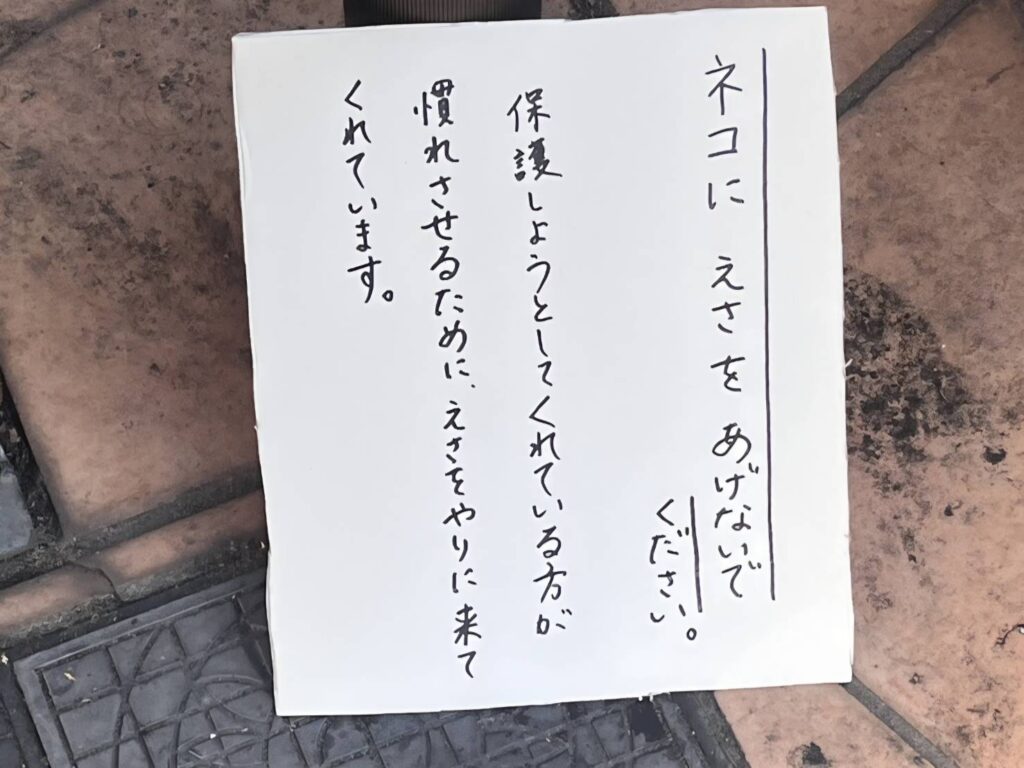 ネコに えさを あげないで
ください。
保護しようとしてくれている方が
慣れさせるために、えさをやりに来て
くれています。